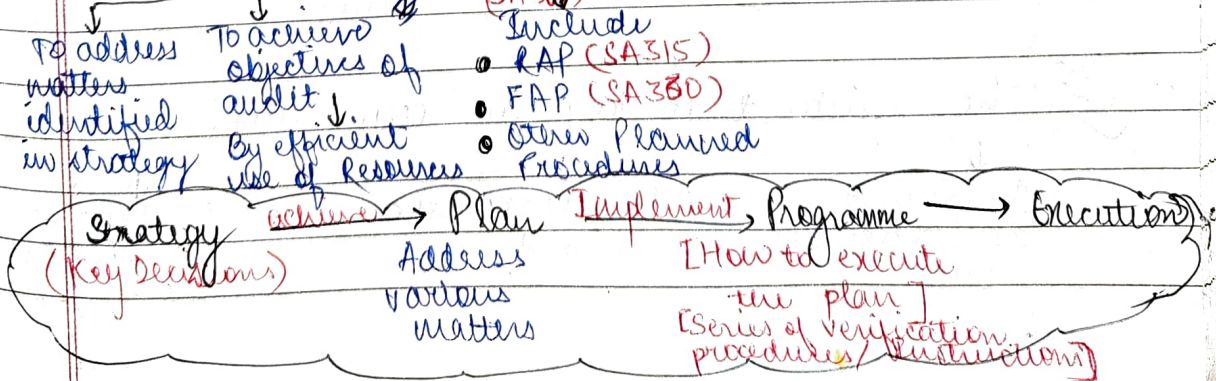 To address
matters
identified
in strategy
To achieve
objectives of
audit
By efficient
use of Resources
Include
• RAP (SA315)
• FAP (SA330)
• Other Planned
Procedures
Strategy achieve → Plan Implement → Programme → Execution
(Key Decisions)
Address
various
matters
[How to execute
the plan]
[Series of verification
procedures/Instructions]